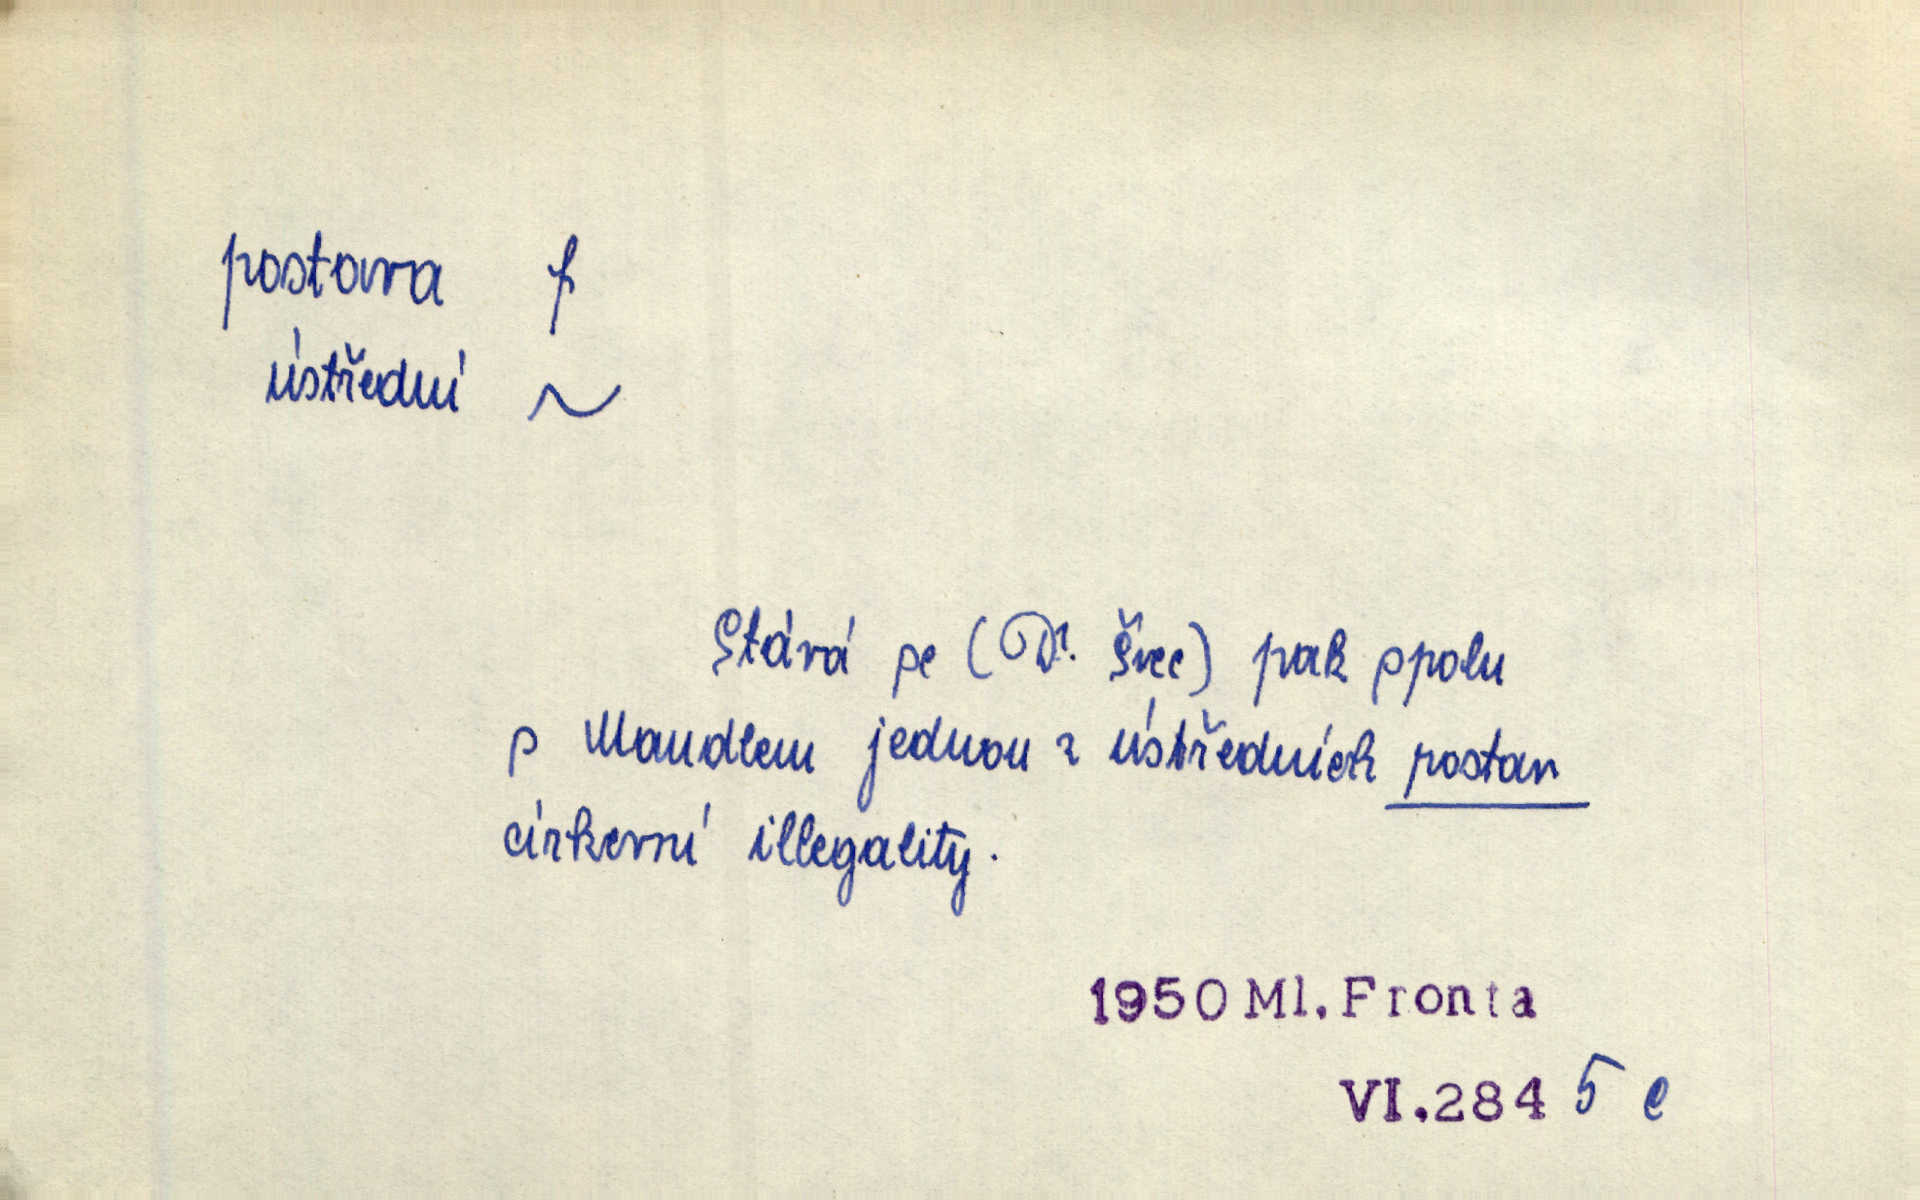 postava f
ústřední ~
Stává se (Dr. Švec) pak spolu
s Mandlem jednou z ústředních postav
církevní illegality.
1950 Ml. Fronta
VI.284 5 e